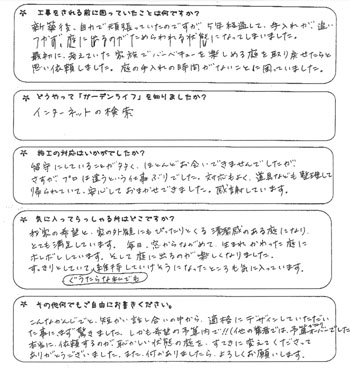 * 工事をされる前に困っていたことは何ですか?
新築後、自力で頑張っていたのですが、5年経過して、手入れが追い
つかず、庭に出るのがためらわれる状態になってしまいました。
最初に、考えていた家族でバーベキューを楽しめる庭を取り戻せたらと
思い依頼しました。庭の手入れの時間がないことに困っていました。
* どうやって「ガーデンライフ」を知りましたか?
インターネットの検索
* 施工の対応はいかがでしたか?
留守にしていることが多く、ほとんどお会いできませんでしたが
さすがプロは違うという仕事ぶりでした。対応もよく、道具なども整理して
帰られていて、安心しておまかせできました。感謝しています。
* 気に入ってらっしゃる所はどこですか?
我家の希望と、家の外観にもぴったりとくる清潔感のある庭になり、
とても満足しています。毎日、窓からながめて、生まれかわった庭に
ホレボレしています。そして庭に出るのが楽しくなりました。
すっきりとしていて、維持していけそうになったところも気に入っています。
ぐうたらなもんでも
* その他何でもご自由にお書きください。
こんなかんじでと、短かい話し合いの中から、適格にデザインしていただい
た事にまず驚きました。しかも希望の予算内で!!(他の業者では、予算オーバーでした)
本当に、依頼するのが恥かしい状態の庭を、すてきに変えてくださって
ありがとうございました。また、何かありましたら、よろしくお願いします。